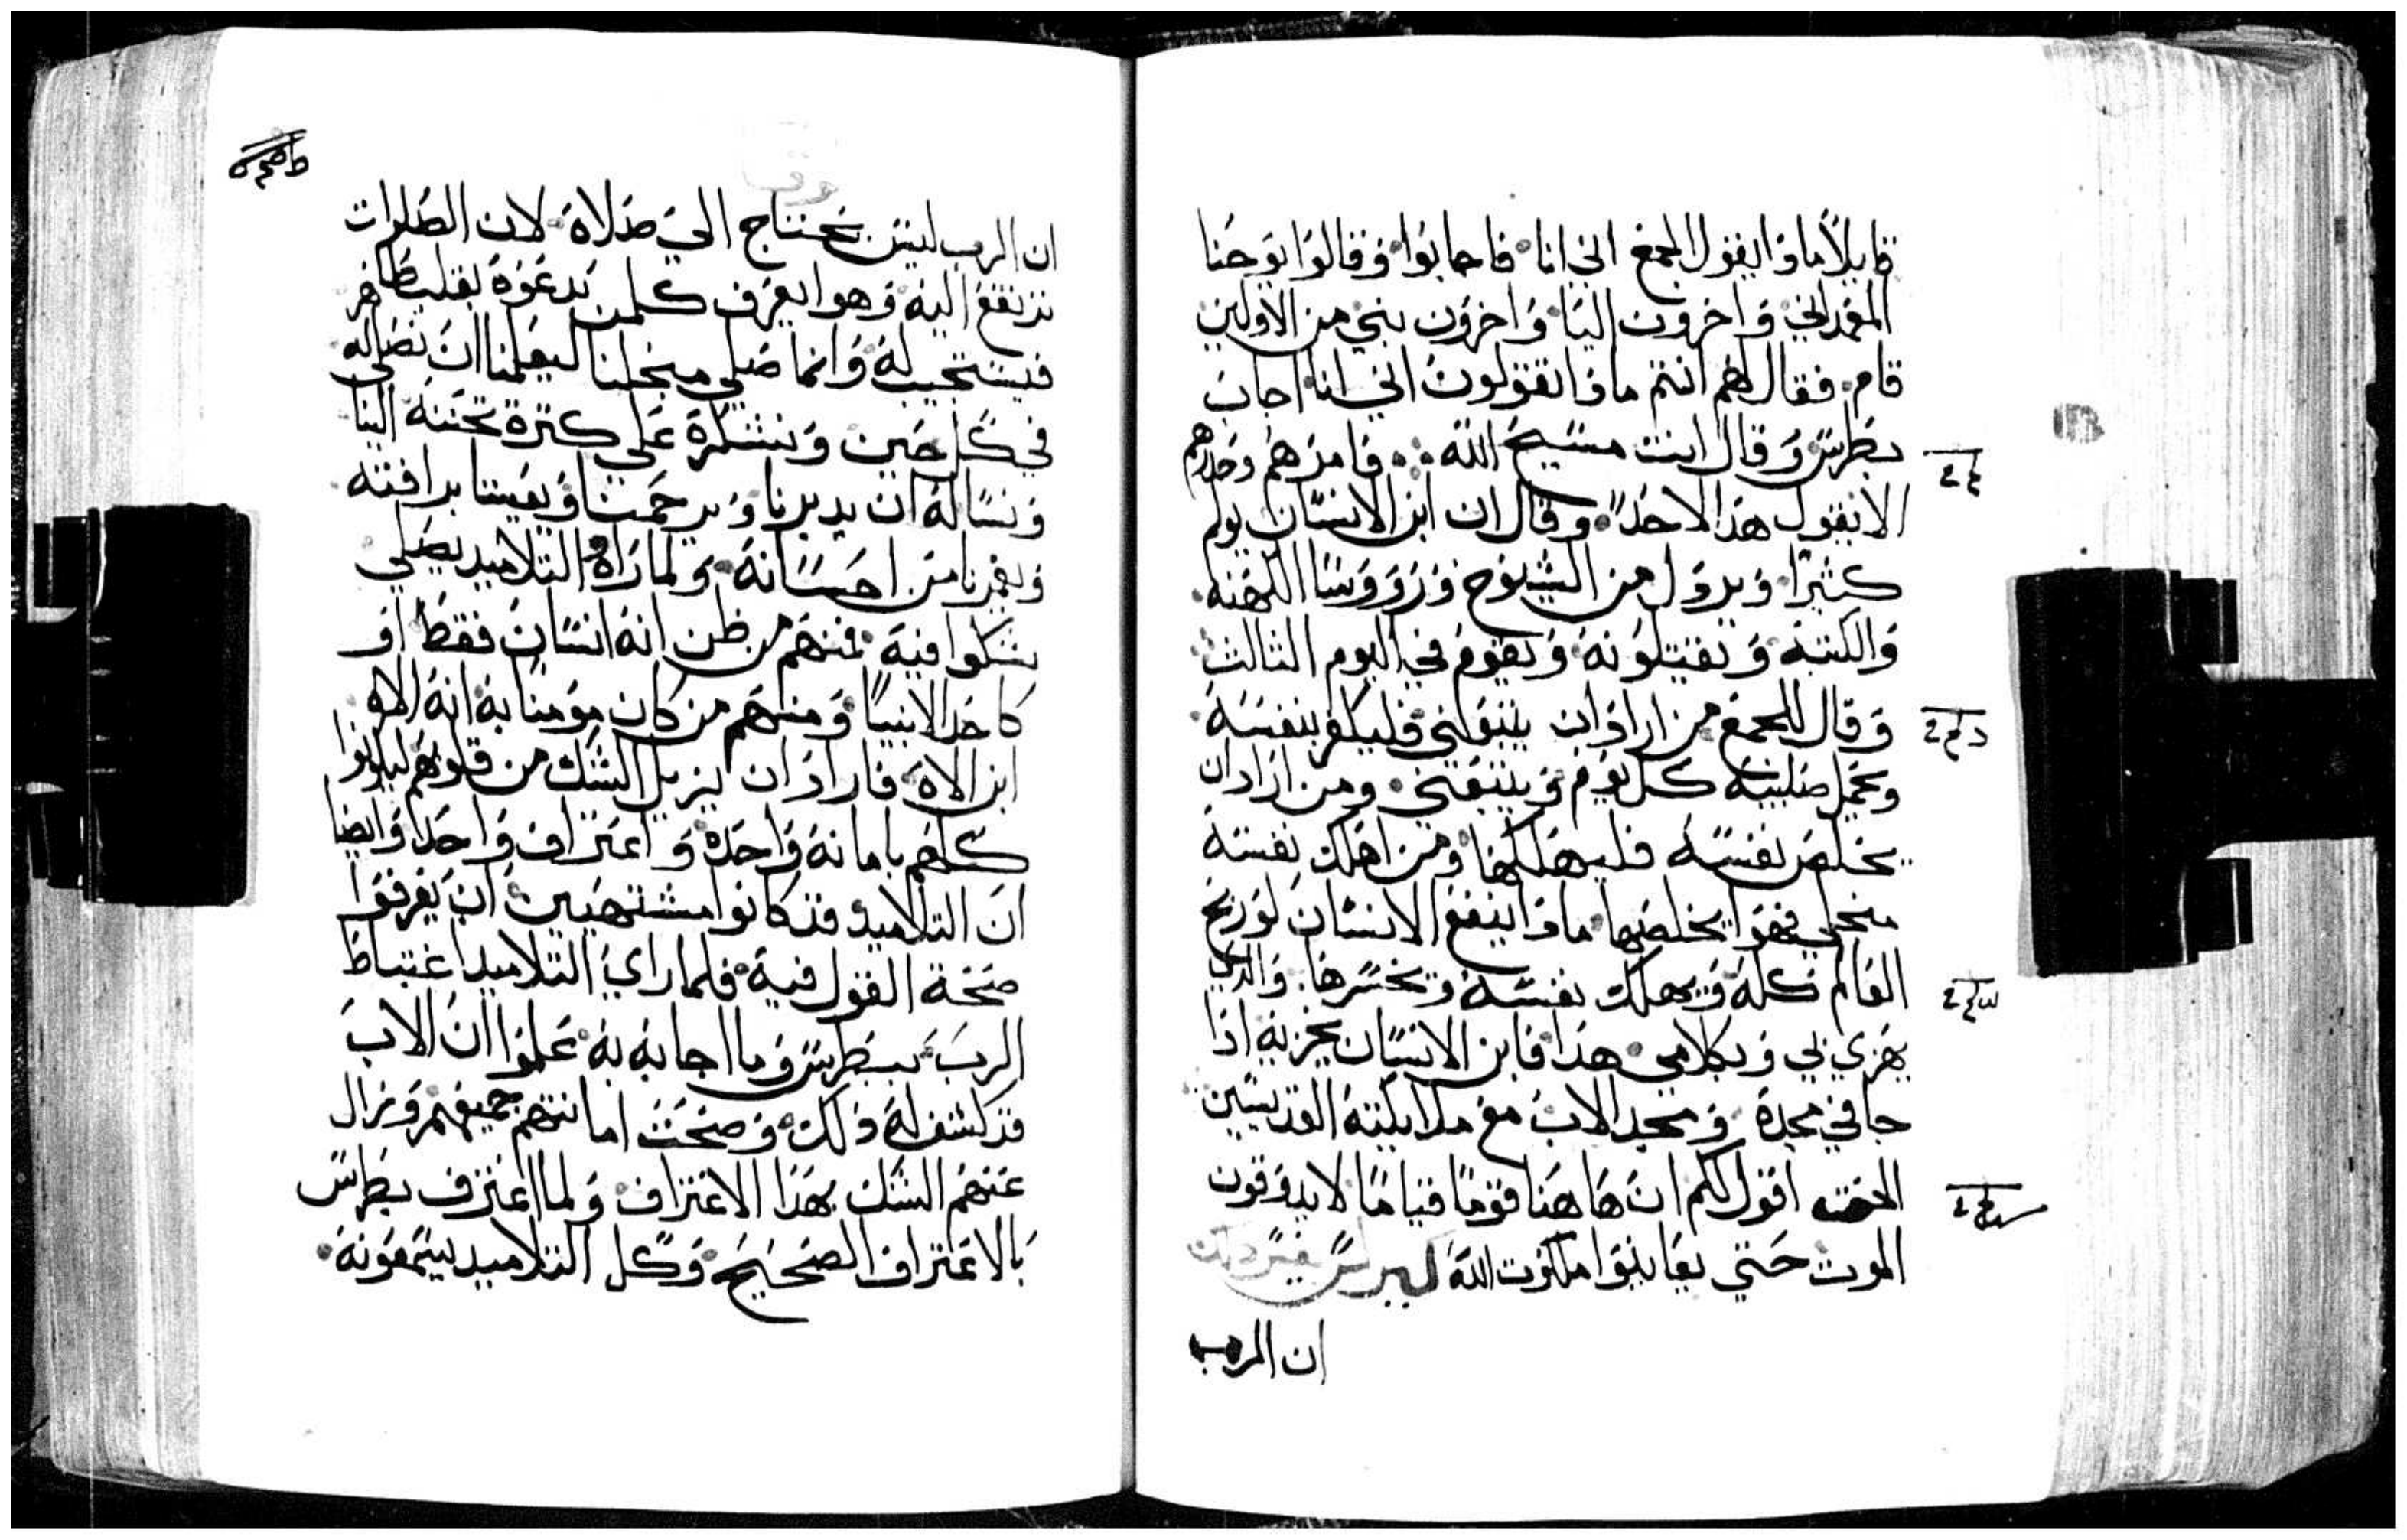 قايلاً ماذا يقول الجمع اني انا فاجابوا وقالوا يوحنا
المعمداني واخرون اليا واخرون نبي من الاولين
قام فقال لهم انتم ماذا تقولون اني انا اجاب
بطرس وقال انت مسيح الله فامرهم وحدهم
الا يقول هذا لاحد وقال ان ابن الانسان يولم
كثيرا ويردل من الشيوخ وروووسا الكهنه
والكتبه ويقتلونه ويقوم في اليوم الثالث
وقال للجمع من اراد ان يتبعني فليكفر بنفسه
ويحمل صليبه كل يوم ويتبعني ومن اراد ان
يخلص نفسه فليهلكها ومن اهلك نفسه
منجلي فهو يخلصها ماذا ينفع الانسان لو ربح
العالم كله ويهلك نفسه ويخسرها والذي
يهزي بي وبكلامي هذا فابن الانسان يخزيه اذا
جا في مجده ومجد الاب مع ملايكته القديسين
اقول لكم ان هاهنا قوما قياما لا يدوقون
الموت حتي يعاينوا ملكوت الله
ان الرب
ان الرب ليس يحتاج الي صلاة لان الصلوات
ترتفع اليه وهوا يعرف كلمن يدعوه بقلب طاهر
فيستجيب له وانما صلي منجلنا ليعلمنا ان نصلي له
في كل حين ونشكره علي كثرة تحننه الينا
ونساله ان يدبرنا ويرحمنا ويعيننا برافته
ويغمرنا من احسانه ولما راه التلاميد يصلي
شكوا فيه فمنهم من ظن انه انسان فقط او
كاحد الانبيا ومنهم من كان مومنا به انه الاه
ابن الاه فاراد ان يزيل الشك من قلوبهم ليكونوا
كلهم بامانه واحده واعتراف واحد وايضا
ان التلاميد قد كانوا مشتهيين ان يعرفوا
صحة القول فيه فلما راي التلاميد اغتباط
الرب ببطرس وما اجابه به علموا ان الاب
قد كشف له ذلك وصحت امانتهم جميعهم وزال
عنهم الشك بهذا الاعتراف ولما اعترف بطرس
بالاعتراف الصحيح وكل التلاميد يسمعونه